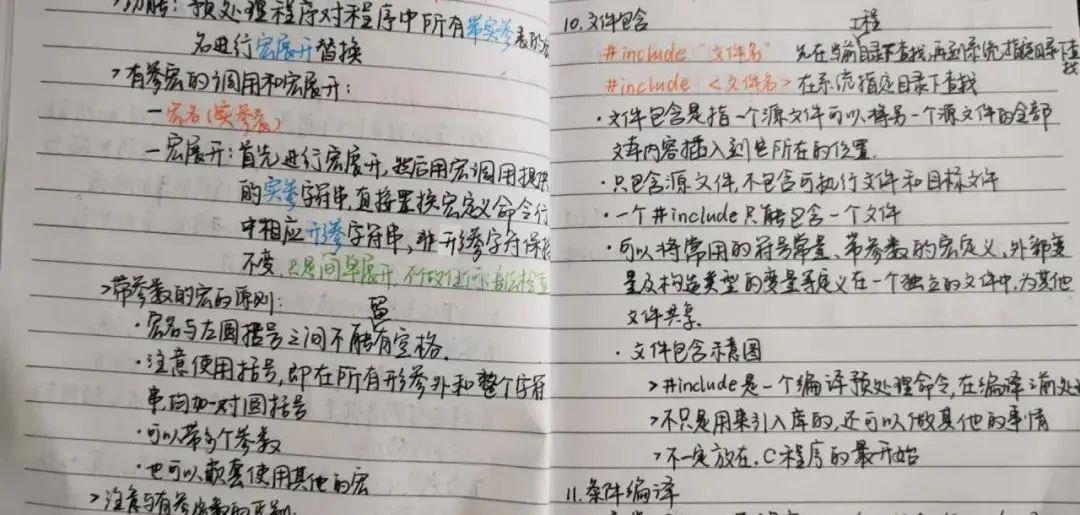 >功能：预处理程序对程序中所有带实参表的宏
名进行宏展开替换
>有参宏的调用和宏展开：
一宏名(实参表)
一宏展开：首先进行宏展开,然后用宏调用提供
的实参字符串,直接置换宏定义命令行
中相应形参字符串,非形参字符保持
不变.只是简单展开,不做任何语法检查
>带参数的宏的原则：
·宏名与左圆括号之间不能留有空格.
·注意使用括号,即在所有形参外和整个字符
串,均加一对圆括号
·可以带多个参数
·也可以嵌套使用其他的宏
>注意与有参函数的区别：
10.文件包含
#include "文件名" 先在当前工程目录下查找,再到系统指定目录下查找
#include <文件名> 在系统指定目录下查找
·文件包含是指一个源文件可以将另一个源文件的全部
文本内容插入到它所在的位置.
·只包含源文件,不包含可执行文件和目标文件
·一个#include只能包含一个文件
·可以将常用的符号常量、带参数的宏定义、外部变
量及构造类型的变量等定义在一个独立的文件中,为其他
文件共享.
·文件包含示意图
>#include是一个编译预处理命令,在编译之前处
>不只是用来引入库的,还可以做其他的事情
>不一定放在.C程序的最开始
11.条件编译